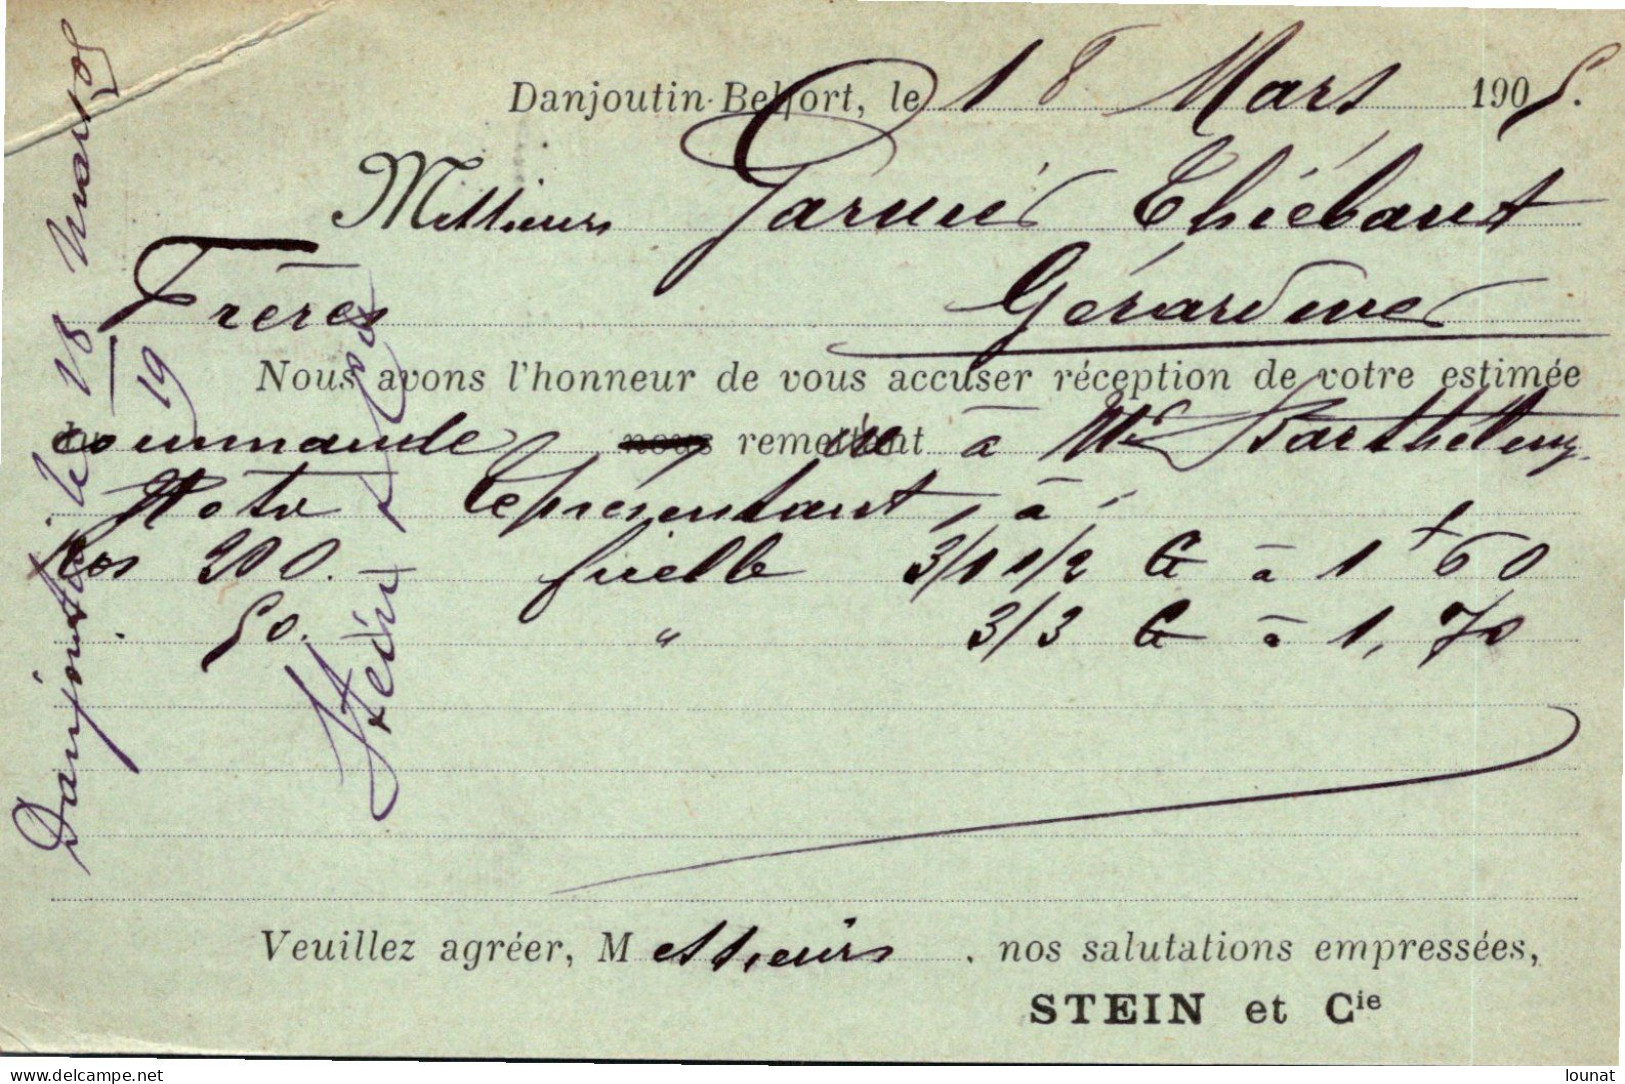 Danjoutin-Belfort, le 18 Mars 1905.
Messieurs Garnier Thiébaut
Frères Gérardmer
Nous avons l'honneur de vous accuser réception de votre estimée
commande nous remettent à Mr Barthélemy
Notre représentant, à
Kos 200. ficelle 3/1 1/2 G à 1,60
50. " 3/3 G à 1,70
Veuillez agréer, Messieurs, nos salutations empressées,
STEIN et Cie
Danjoutin le 18 mars 05
19
Stein
www.delcampe.net
lounat